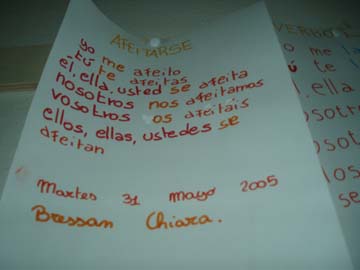 AFEITARSE
yo me afeito
tú te afeitas
el, ella, usted se afeita
nosotros nos afeitamos
vosotros os afeitáis
ellos, ellas, ustedes se
afeitan
Martes 31 mayo 2005
Bressan Chiara.
VERBO
yo me l
ú te
, ella
osotr
osot
los
se